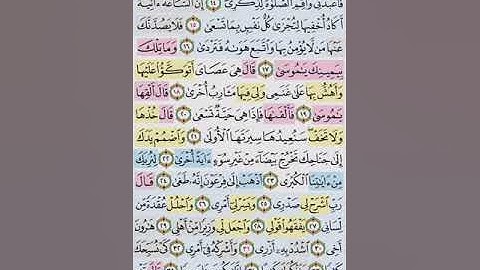 فَٱعْبُدْنِى وَأَقِمِ ٱلصَّلَوٰةَ لِذِكْرِىٓ ١٤ إِنَّ ٱلسَّاعَةَ ءَاتِيَةٌ
أَكَادُ أُخْفِيهَا لِتُجْزَىٰ كُلُّ نَفْسٍۭ بِمَا تَسْعَىٰ ١٥ فَلَا يَصُدَّنَّكَ
عَنْهَا مَن لَّا يُؤْمِنُ بِهَا وَٱتَّبَعَ هَوَىٰهُ فَتَرْدَىٰ ١٦ وَمَا تِلْكَ
بِيَمِينِكَ يَٰمُوسَىٰ ١٧ قَالَ هِىَ عَصَاىَ أَتَوَكَّؤُا۟ عَلَيْهَا
وَأَهُشُّ بِهَا عَلَىٰ غَنَمِى وَلِىَ فِيهَا مَـَٔارِبُ أُخْرَىٰ ١٨ قَالَ أَلْقِهَا
يَٰمُوسَىٰ ١٩ فَأَلْقَىٰهَا فَإِذَا هِىَ حَيَّةٌ تَسْعَىٰ ٢٠ قَالَ خُذْهَا
وَلَا تَخَفْ سَنُعِيدُهَا سِيرَتَهَا ٱلْأُولَىٰ ٢١ وَٱضْمُمْ يَدَكَ
إِلَىٰ جَنَاحِكَ تَخْرُجْ بَيْضَآءَ مِنْ غَيْرِ سُوٓءٍ ءَايَةً أُخْرَىٰ ٢٢ لِنُرِيَكَ
مِنْ ءَايَٰتِنَا ٱلْكُبْرَى ٢٣ ٱذْهَبْ إِلَىٰ فِرْعَوْنَ إِنَّهُۥ طَغَىٰ ٢٤ قَالَ
رَبِّ ٱشْرَحْ لِى صَدْرِى ٢٥ وَيَسِّرْ لِىٓ أَمْرِى ٢٦ وَٱحْلُلْ عُقْدَةً مِّن
لِّسَانِى ٢٧ يَفْقَهُوا۟ قَوْلِى ٢٨ وَٱجْعَل لِّى وَزِيرًا مِّنْ أَهْلِى ٢٩ هَٰرُونَ
أَخِى ٣٠ ٱشْدُدْ بِهِۦٓ أَزْرِى ٣١ وَأَشْرِكْهُ فِىٓ أَمْرِى ٣٢ كَىْ نُسَبِّحَكَ